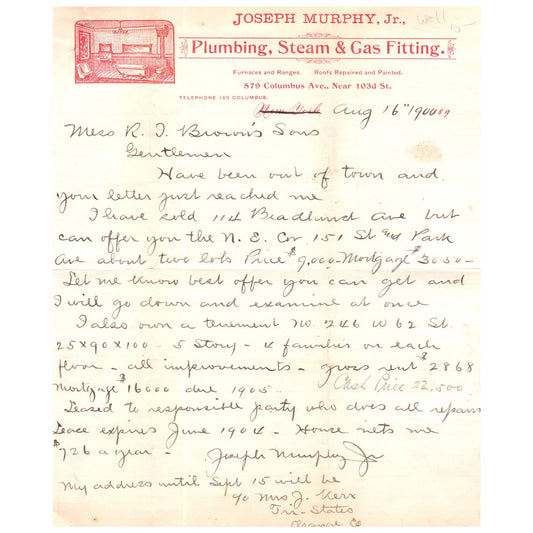 JOSEPH MURPHY, Jr.,
Well
10-
Plumbing, Steam & Gas Fitting.
Furnaces and Ranges. Roofs Repaired and Painted.
879 Columbus Ave., Near 103d St.
TELEPHONE 189 COLUMBUS.
New York Aug 16" 1900
Mess R. I. Brown's Sons
Gentlemen
Have been out of town and
your letter just reached me
I have sold 114 Bradhurst Ave but
can offer you the N. E. Cor. 151 St and Park
Ave about two lots Price $9,000 - Mortgage $3050 -
Let me know best offer you can get and
I will go down and examine at once
I also own a tenement No. 246 W 62 St.
25x90x100 - 5 Story - 4 families on each
floor - all improvements - gross rent $2868
Mortgage $16000 due 1905 -
Cash Price 22,500
Leased to responsible party who does all repairs
Leace expires June 1904 - House nets me
$726 a year - Joseph Murphy Jr
My address until Sept 15 will be
c/o Mrs J. Kerr
Tri-States
Orange Co